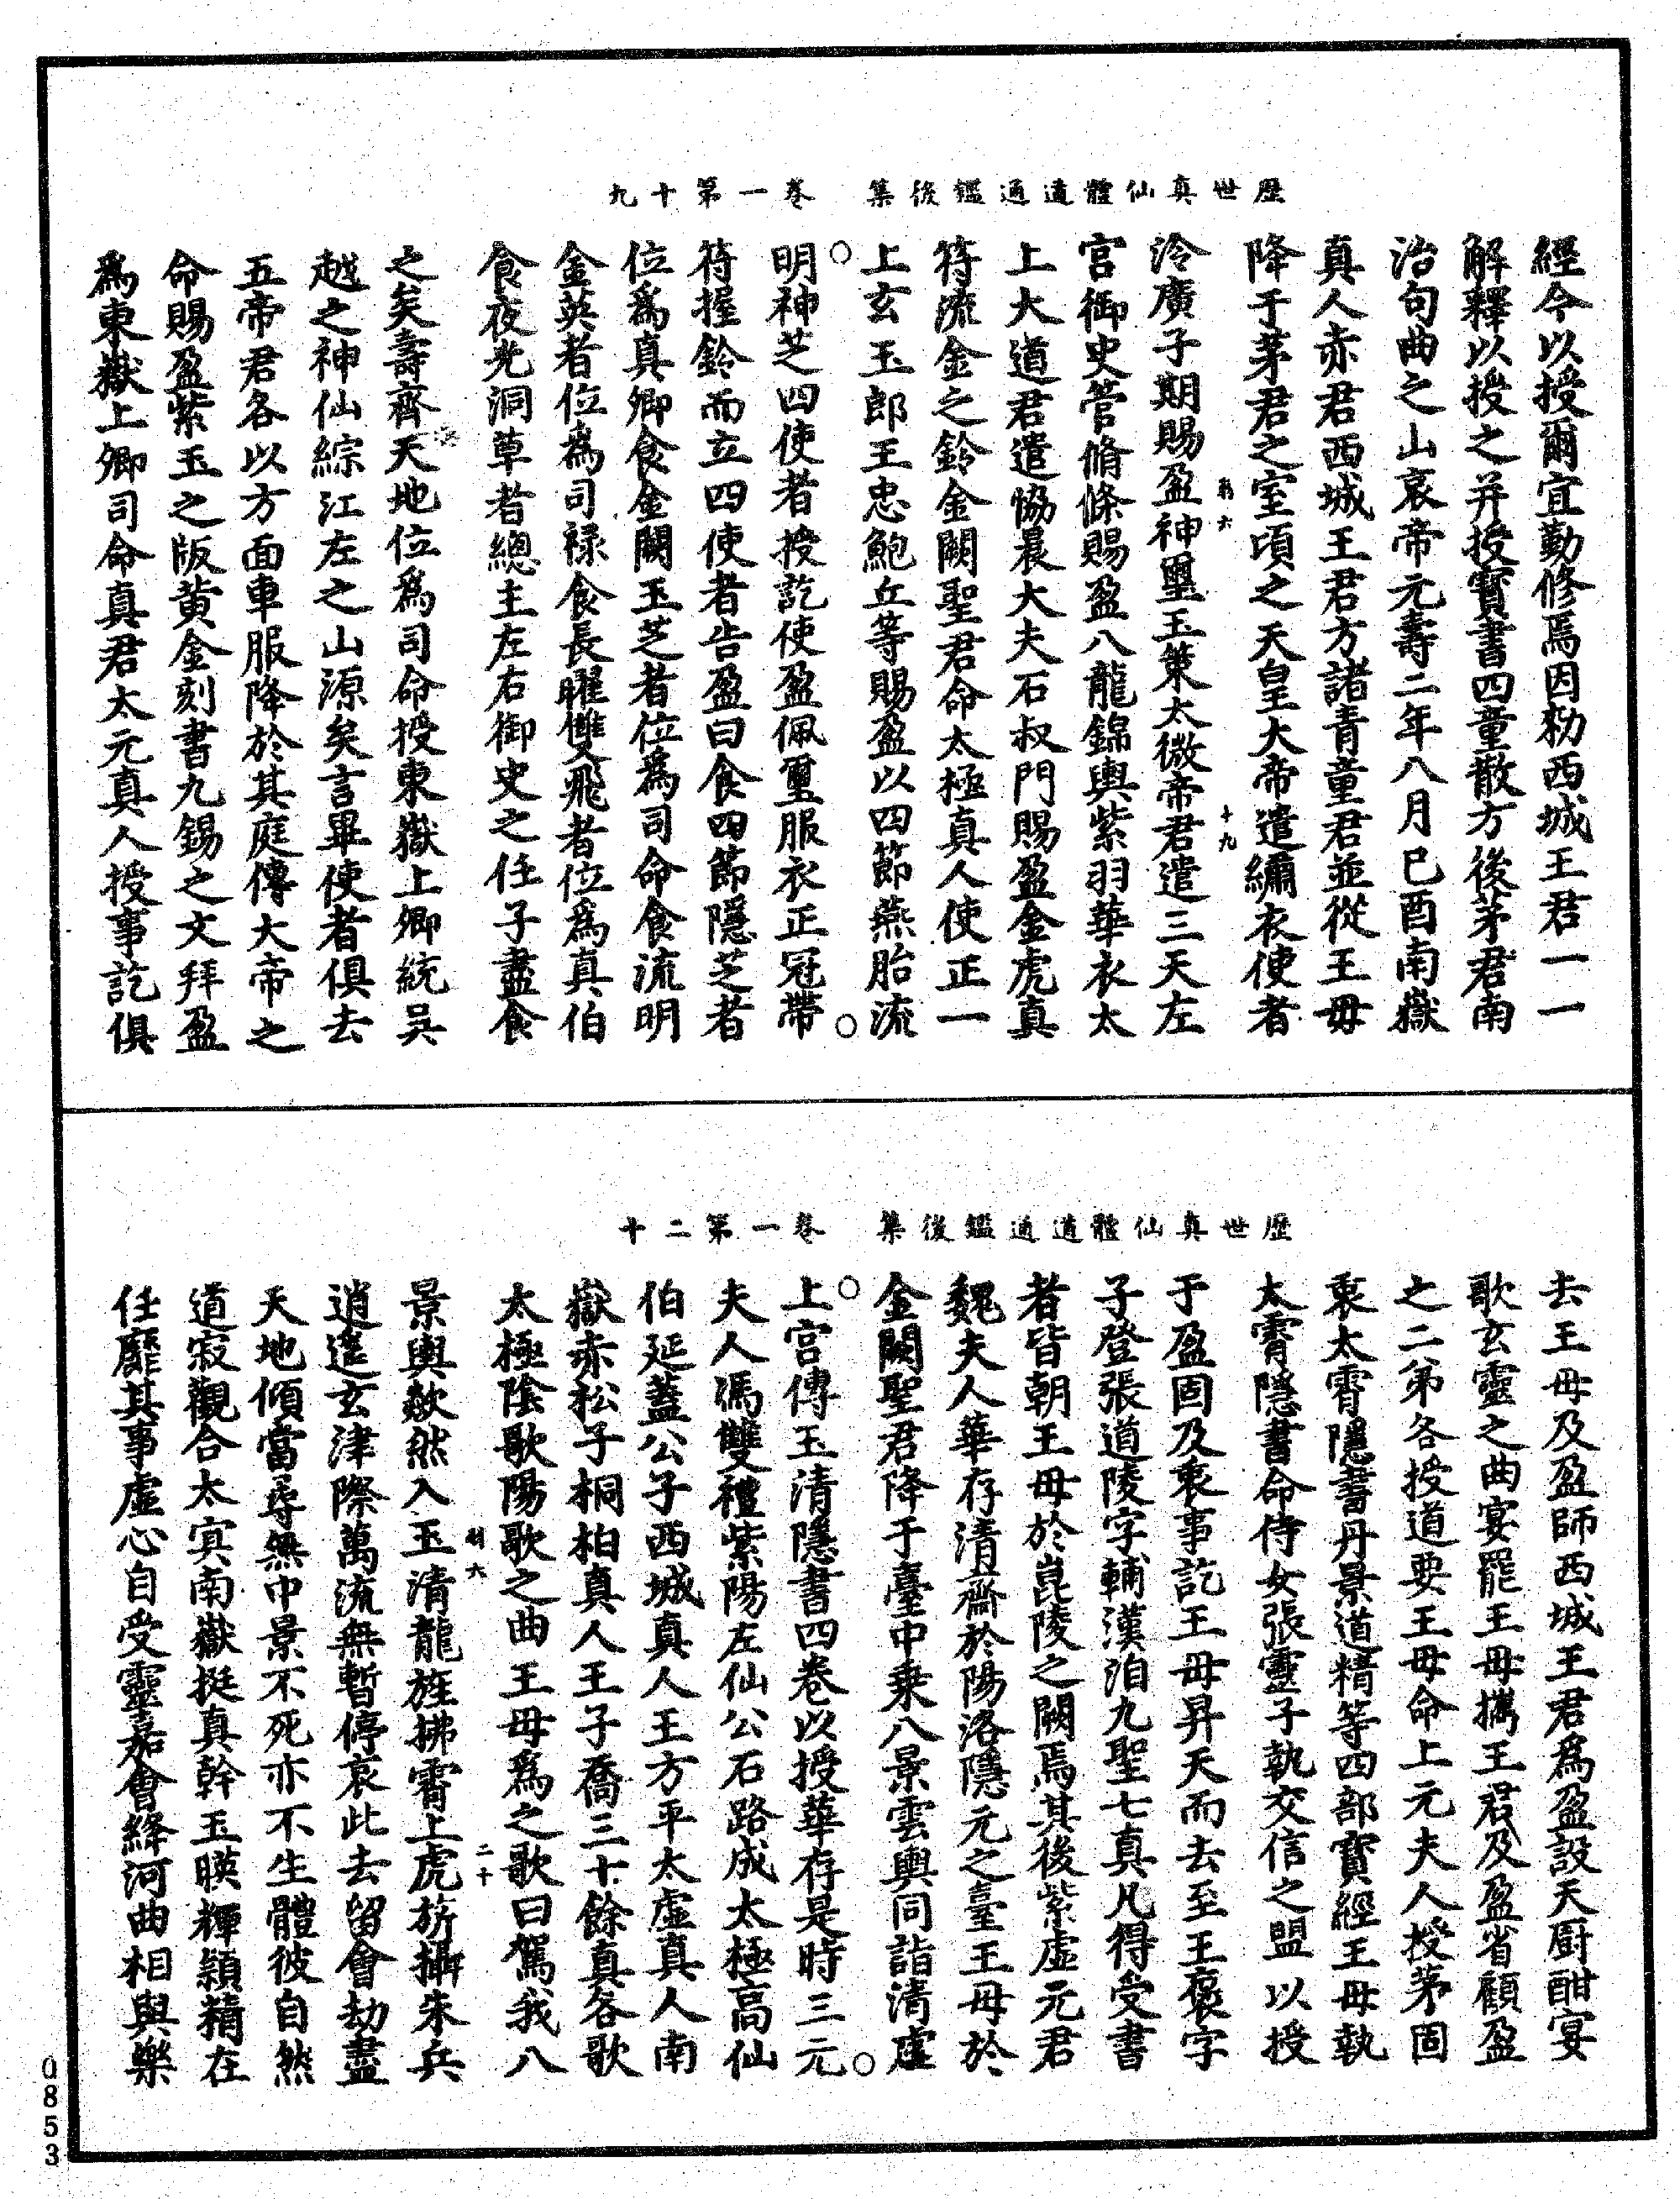 歷世真仙體道通鑑後集　卷一第十九
經今以授爾宜勤修焉因勑西城王君一一
解釋以授之并授寶書四童散方後茅君南
治句曲之山哀帝元壽二年八月已酉南嶽
真人赤君西城王君方諸青童君並從王毋
降于茅君之室頃之天皇大帝遣繡衣使者
泠廣子期賜盈神璽玉策太微帝君遣三天左
宮御史管脩條賜盈八龍錦輿紫羽華衣太
上大道君遣恊晨大夫石叔門賜盈金虎真
符流金之鈴金闕聖君命太極真人使正一
上玄玉郎王忠鮑丘等賜盈以四節燕胎流
明神芝四使者授訖使盈佩璽服衣正冠帶
符握鈴而立四使者告盈曰食四節隱芝者
位為真卿食金闕玉芝者位為司命食流明
金英者位為司祿食長曜雙飛者位為真伯
食夜光洞草者總主左右御史之任子盡食
之矣壽齊天地位為司命授東嶽上卿統吳
越之神仙綜江左之山源矣言畢使者俱去
五帝君各以方面車服降於其庭傳大帝之
命賜盈紫玉之版黃金刻書九錫之文拜盈
為東嶽上卿司命真君太元真人授事訖俱
十九
歷世真仙體道通鑑後集　卷一第二十
去王毋及盈師西城王君為盈設天厨酣宴
歌玄靈之曲宴罷王毋攜王君及盈省顧盈
之二弟各授道要王毋命上元夫人授茅固
衷太霄隱書丹景道精等四部寶經王毋執
太霄隱書命侍女張靈子執交信之盟以授
于盈固及衷事訖王毋昇天而去至王褒字
子登張道陵字輔漢洎九聖七真凡得受書
者皆朝王毋於崑陵之闕焉其後紫虛元君
魏夫人華存清齋於陽洛隱元之臺王毋於
金闕聖君降于臺中乗八景雲輿同詣清虛
上宮傳玉清隱書四卷以授華存是時三元
夫人馮雙禮紫陽左仙公石路成太極高仙
伯延蓋公子西城真人王方平太虛真人南
嶽赤松子桐柏真人王子喬三十餘真各歌
太極陰歌陽歌之曲王毋為之歌曰駕我八
景輿歘然入玉清龍旌拂霄上虎旂攝朱兵
逍遙玄津際萬流無暫停哀此去留會劫盡
天地傾當尋無中景不死亦不生體彼自然
道寂觀合太㝠南嶽挺真幹玉暎輝頴精在
任靡其事虛心自受靈嘉會絳河曲相與樂
二十
0853